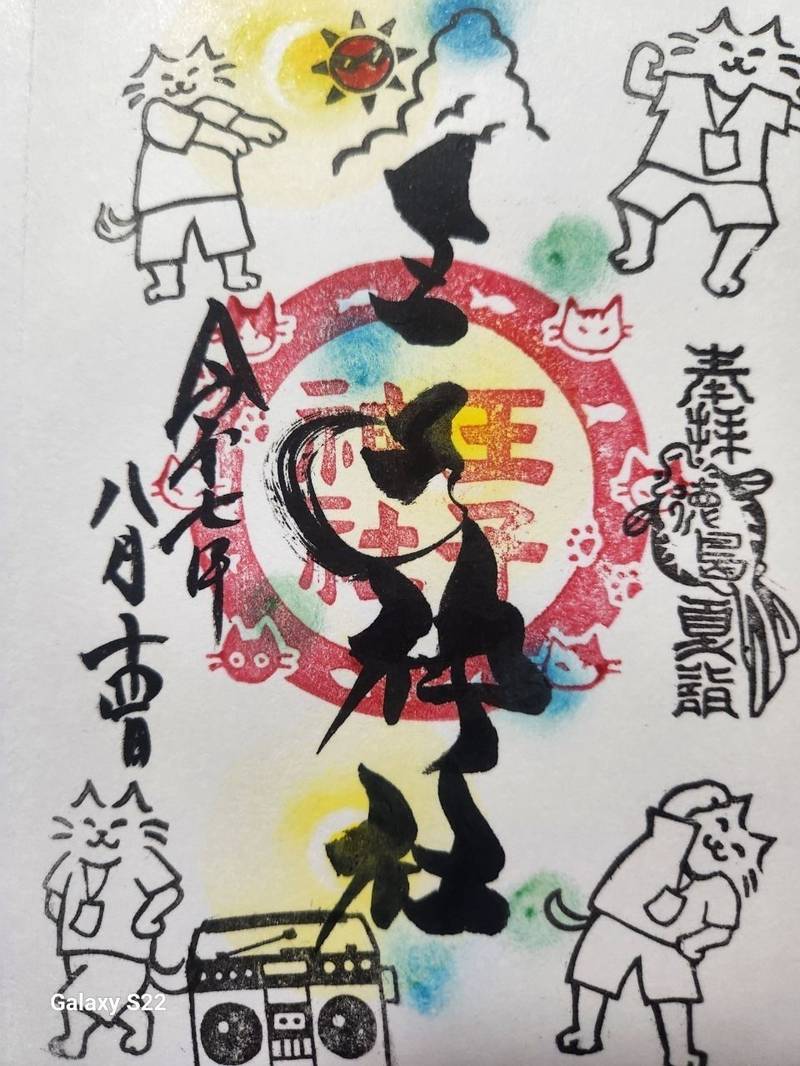 奉拝
徳島夏詣
王子神社
王子
神社
令和七年
八月十四日
Galaxy S22